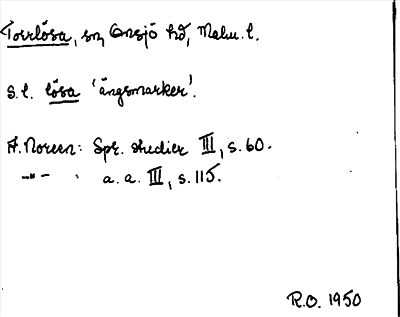 Torrlösa, sn, Onsjö hd, Malm. l.
S. l. lösa 'ängsmarker'.
A. Noreen: Spr. studier III, s. 60.
-"- : a. a. III, s. 115.
R.O. 1950